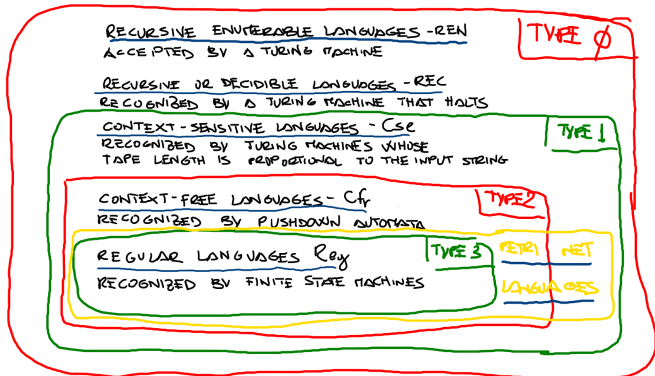 RECURSIVE ENUMERABLE LANGUAGES - REN
TYPE 0
ACCEPTED BY A TURING MACHINE
RECURSIVE OR DECIDIBLE LANGUAGES - REC
RECOGNIZED BY A TURING MACHINE THAT HALTS
CONTEXT-SENSITIVE LANGUAGES - Cse
TYPE 1
RECOGNIZED BY TURING MACHINES WHOSE
TAPE LENGTH IS PROPORTIONAL TO THE INPUT STRING
CONTEXT-FREE LANGUAGES - Cfr
TYPE 2
RECOGNIZED BY PUSHDOWN AUTOMATA
REGULAR LANGUAGES Reg
TYPE 3
PETRI NET
LANGUAGES
RECOGNIZED BY FINITE STATE MACHINES